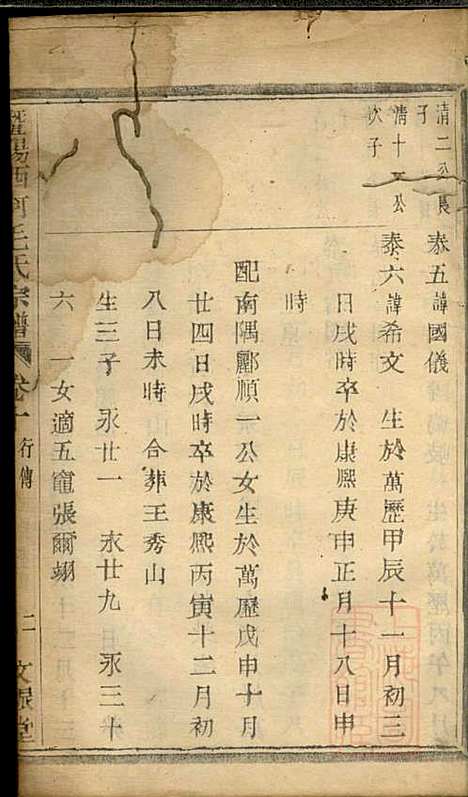 清二公長子
清十 公次子
泰五諱國儀
泰六諱希文 生於萬歷甲辰十一月初三
日戌時卒於康熙庚申正月十八日申
時
配南隅酈順一公女生於萬歷戊申十月
廿四日戌時卒於康熙丙寅十二月初
八日未時合葬王秀山
生三子 永廿一 永廿九 永三十
六 一女適五竈張爾翊
暨陽西河毛氏宗譜 卷一 行傳 二 文 堂